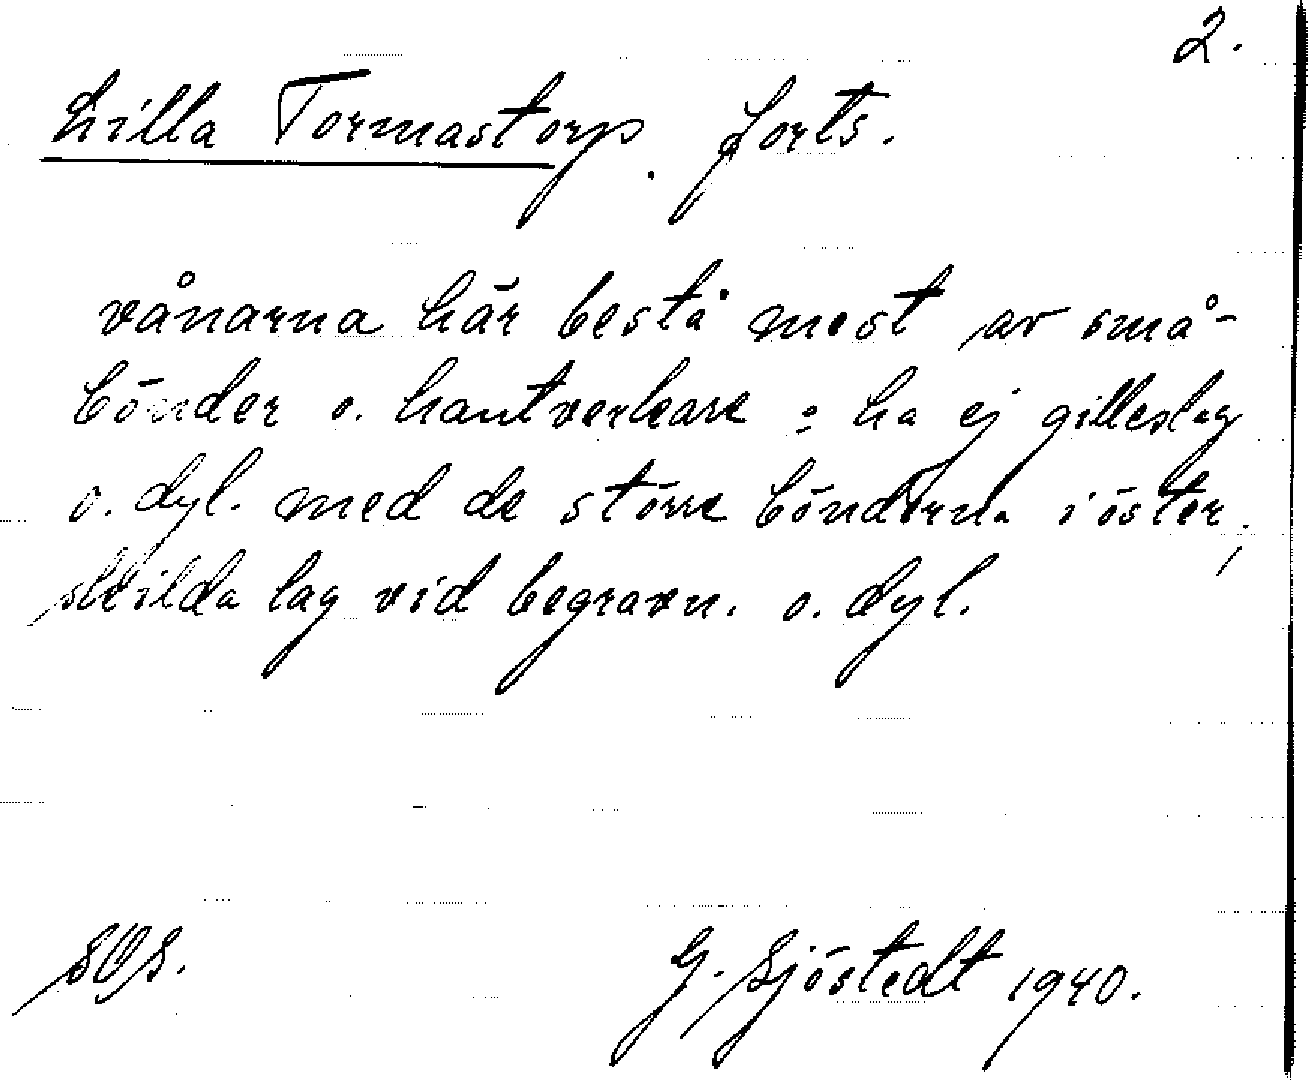 2.
Lilla Tormastorp. forts.
vånarna här bestå mest av små-
bönder o. hantverkare : ha ej gilleslag
o. dyl. med de större bönderna i öster,
skilda lag vid begravn. o. dyl.
G. Sjöstedt 1940.